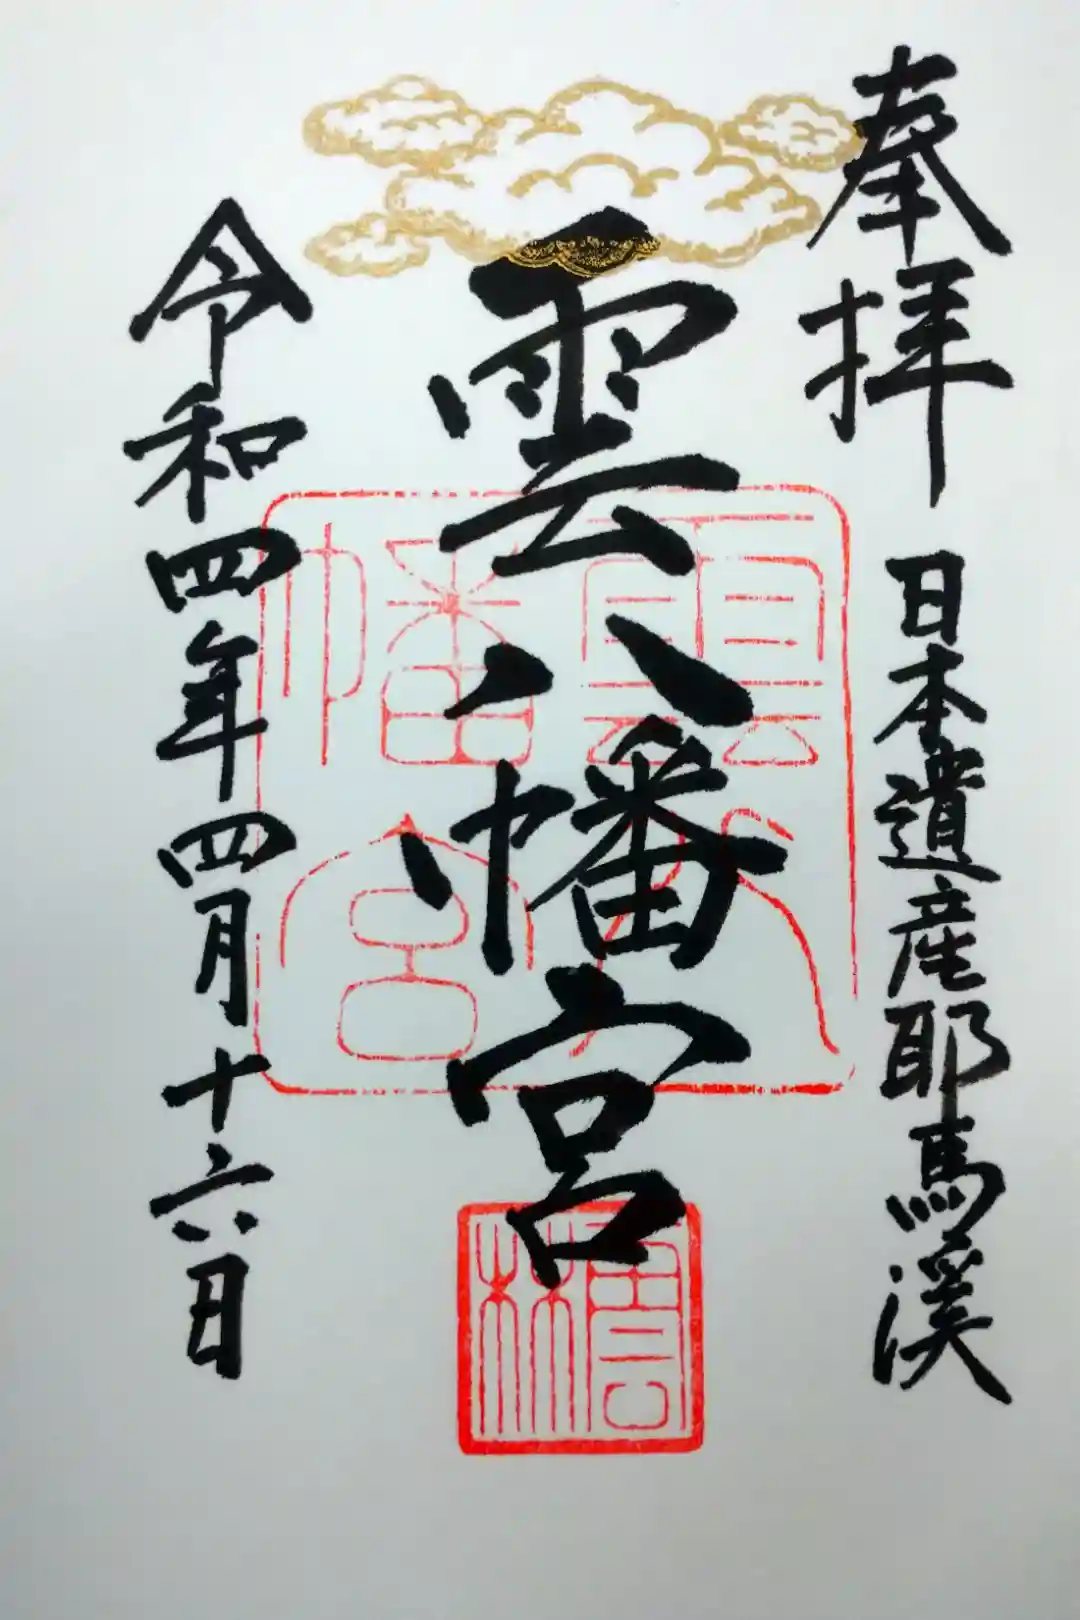 奉拝 日本遺産耶馬溪
雲八幡宮
令和四年四月十六日
雲八
幡宮